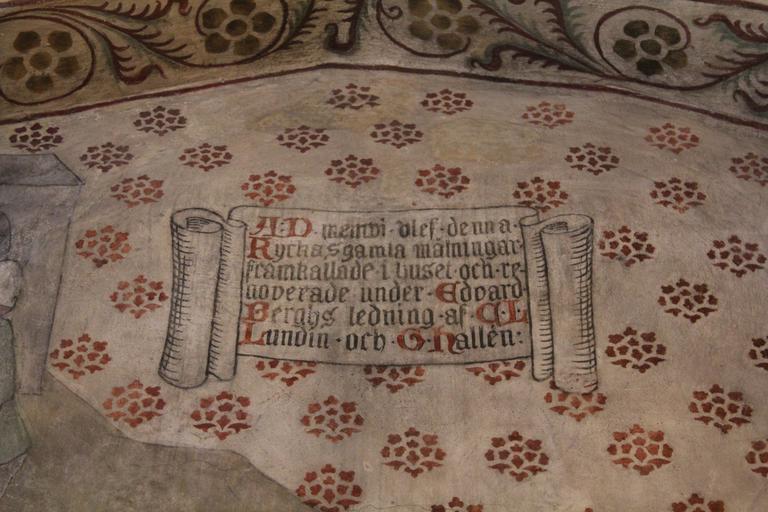 A·D· memvi · blef · denna ·
Kyrkas gamla målningar
framkallade · i · ljuset · och · re-
noverade under · Edvard
Berghs ledning · af · C·L
Lundin · och · G·Hallén: